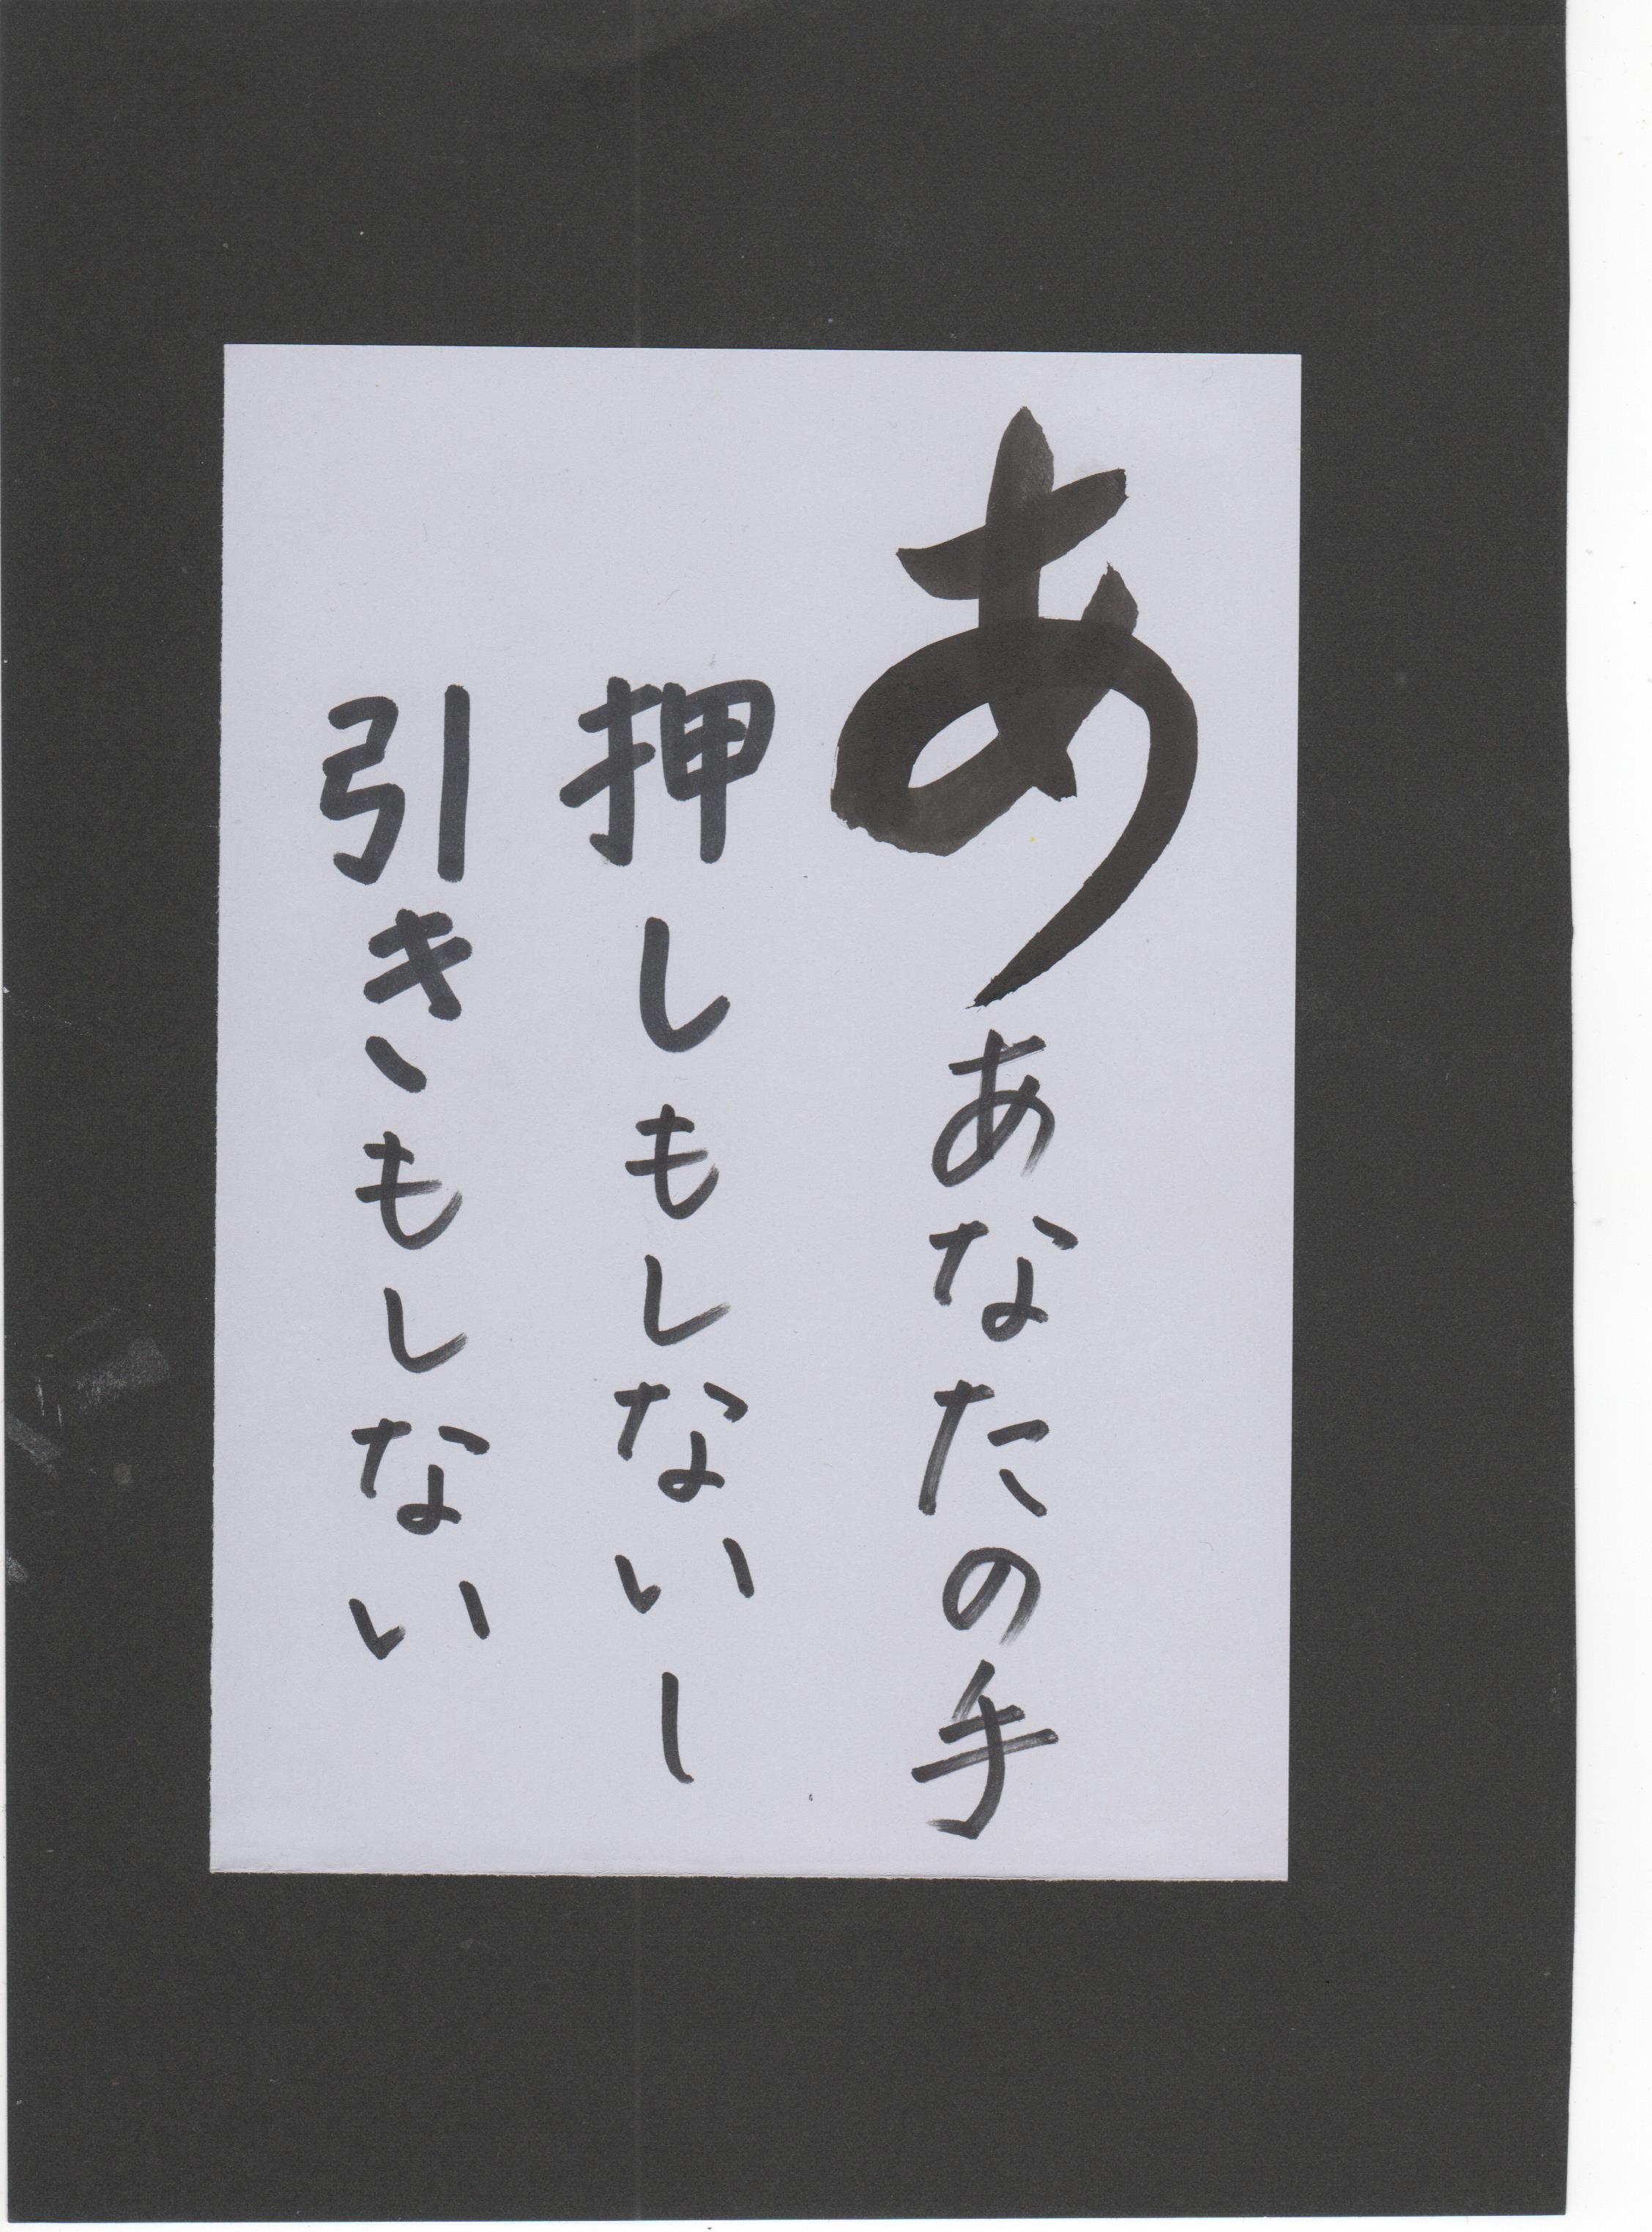 ああなたの手
押しもしないし
引きもしない